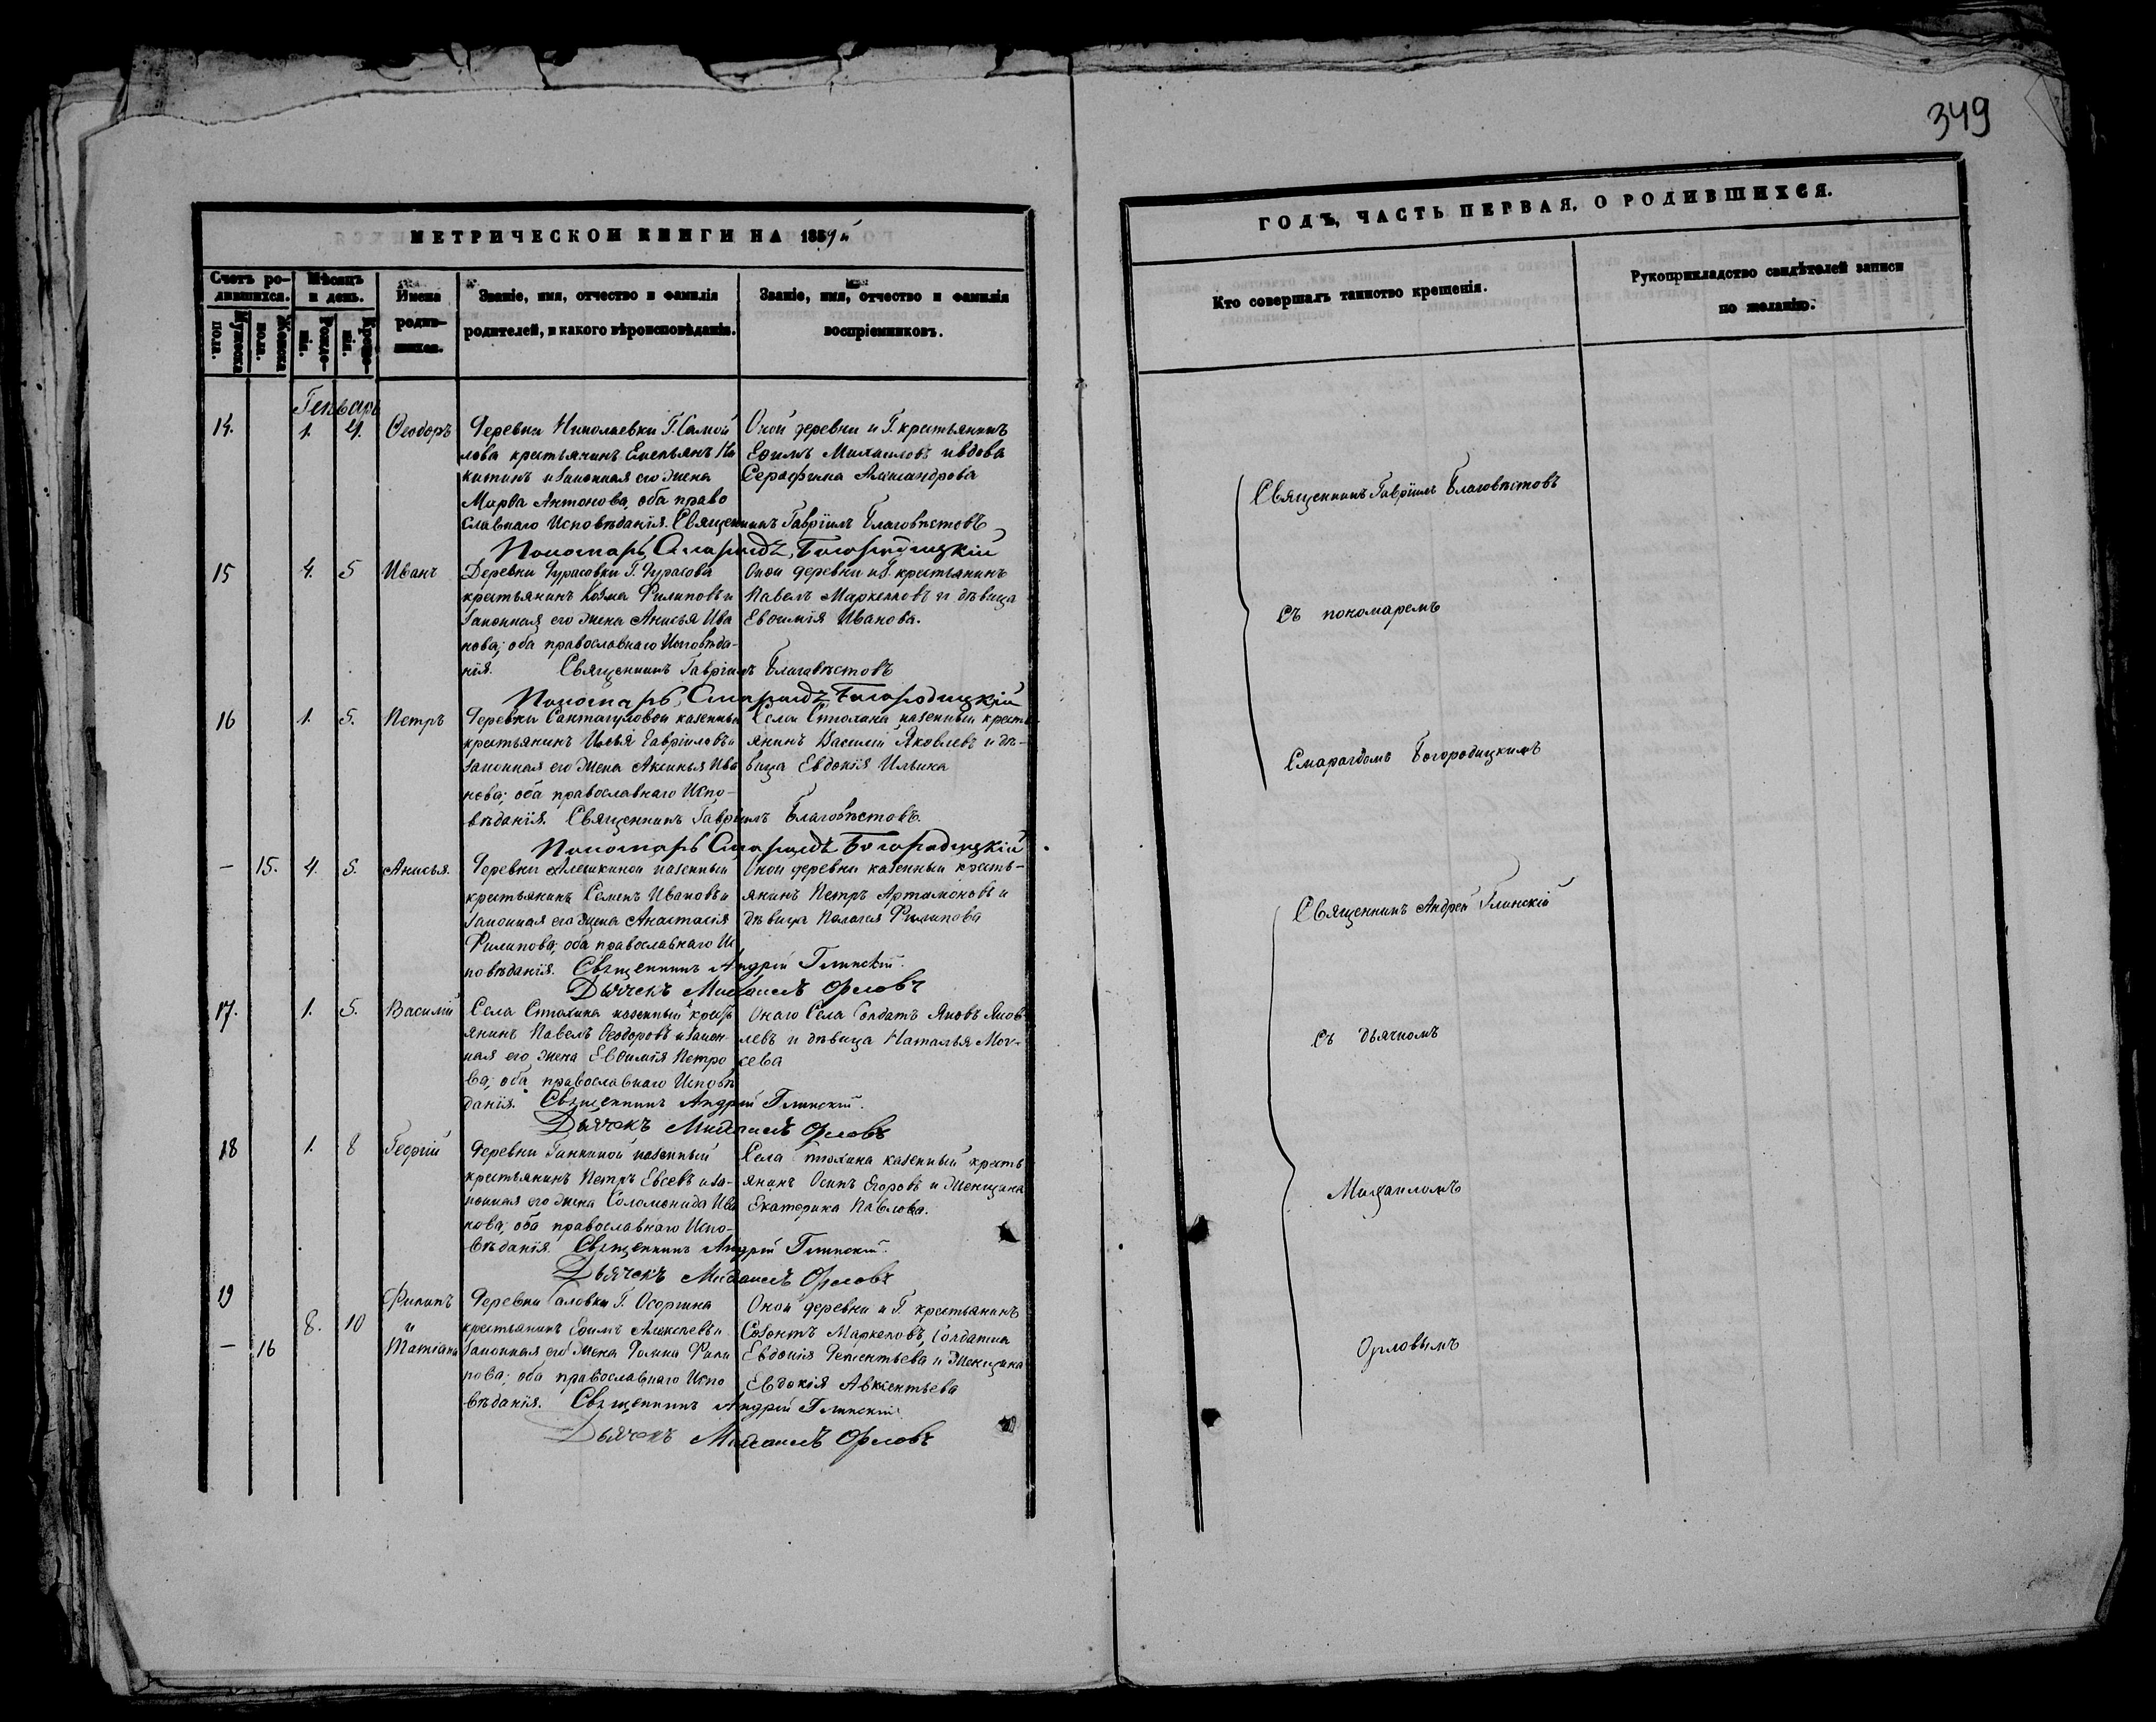 349
МЕТРИЧЕСКОЙ КНИГИ НА 1859й
ГОДЪ, ЧАСТЬ ПЕРВАЯ, О РОДИВШИХСЯ.
Счетъ ро-
дившихся.
Мужеска
полa.
Женска
пола.
Мѣсяцъ
и день.
Рожде-
нія.
Креще-
нія.
Имена
родив-
шихся.
Званіе, имя, отчество и фамилія
родителей, и какого вѣроисповѣданія.
Званіе, имя, отчество и фамилія
воспріемниковъ.
Кто совершалъ таинство крещенія.
Рукоприкладство свидѣтелей записи
по желанію.
Генварь
14. 1. 4. Ѳеодоръ
Деревни Николаевки Г. Самой
лова крестьянинъ Емельянъ Ни
китинъ и законная его жена
Марѳа Антонова, оба право
славнаго Исповѣданія. Священникъ Гавріилъ Благовѣстовъ
Пономарь Смарагдъ Богородицкій
Оной деревни и Г. крестьянинъ
Ефимъ Михаиловъ и вдова
Серафима Александрова
15 4. 5 Иванъ
Деревни Фурасовки Г. Фурасова
крестьянинъ Козма Филиповъ и
законная его жена Анисья Ива
нова; оба православнаго Исповѣда-
нія. Священникъ Гавріилъ Благовѣстовъ
Пономарь Смарагдъ Богородицкій
Оной деревни и Г. крестьянинъ
Павелъ Маркелловъ и дѣвица
Евѳимія Иванова.
16 1. 5. Петръ
Деревни казенный
крестьянинъ Илья Гавріиловъ и
законная его жена Аксинья Ива
нова; оба православнаго Испо-
вѣданія. Священникъ Гавріилъ Благовѣстовъ.
Пономарь Смарагдъ Богородицкій
Села Стюхина казенный кресть
янинъ Василій Яковлевъ и дѣ-
вица Евдокія Ильина
— 15. 4. 5. Анисья.
Деревни Алешкиной казенный
крестьянинъ Семенъ Ивановъ и
законная его жена Анастасія
Филипова; оба православнаго Ис
повѣданія. Священникъ Андрей Глинскій.
Дьячекъ Михаилъ Орловъ
Оной деревни казенный кресть-
янинъ Петръ Артамоновъ и
дѣвица Пелагея Филипова
17. 1. 5. Василій
Села Стюхина казенный крест
янинъ Павелъ Ѳеодоровъ и закон-
ная его жена Евѳимія Петро
ва; оба православнаго Исповѣ
данія. Священникъ Андрей Глинскій.
Дьячекъ Михаилъ Орловъ
Онаго Села Солдатъ Яковъ Яков
левъ и дѣвица Наталья Мои-
сева
18 1. 8 Георгій
Деревни Ганькиной казенный
крестьянинъ Петръ Евсевъ и за-
конная его жена Соломонида Ива
нова; оба православнаго Испо-
вѣданія. Священникъ Андрей Глинскій.
Дьячекъ Михаилъ Орловъ
Села Стюхина казенный кресть
янинъ Осипъ Егоровъ и женщина
Екатерина Павлова.
19
— 16
8. 10
Филипъ
и
Татіана
Деревни Г. Осоргина
крестьянинъ Ефимъ Алексѣевъ и
законная его жена Домна Фили
пова; оба православнаго Испо
вѣданія. Священникъ Андрей Глинскій.
Дьячекъ Михаилъ Орловъ
Оной деревни и Г. крестьянинъ
Созонтъ Маркеловъ, Солдатка
Евдокія Дементьева и женщина
Евдокія Авксентьева
Священникъ Гавріилъ Благовѣстовъ
Съ пономаремъ
Смарагдомъ Богородицкимъ
Священникъ Андрей Глинскій
Съ дьячкомъ
Михаиломъ
Орловымъ